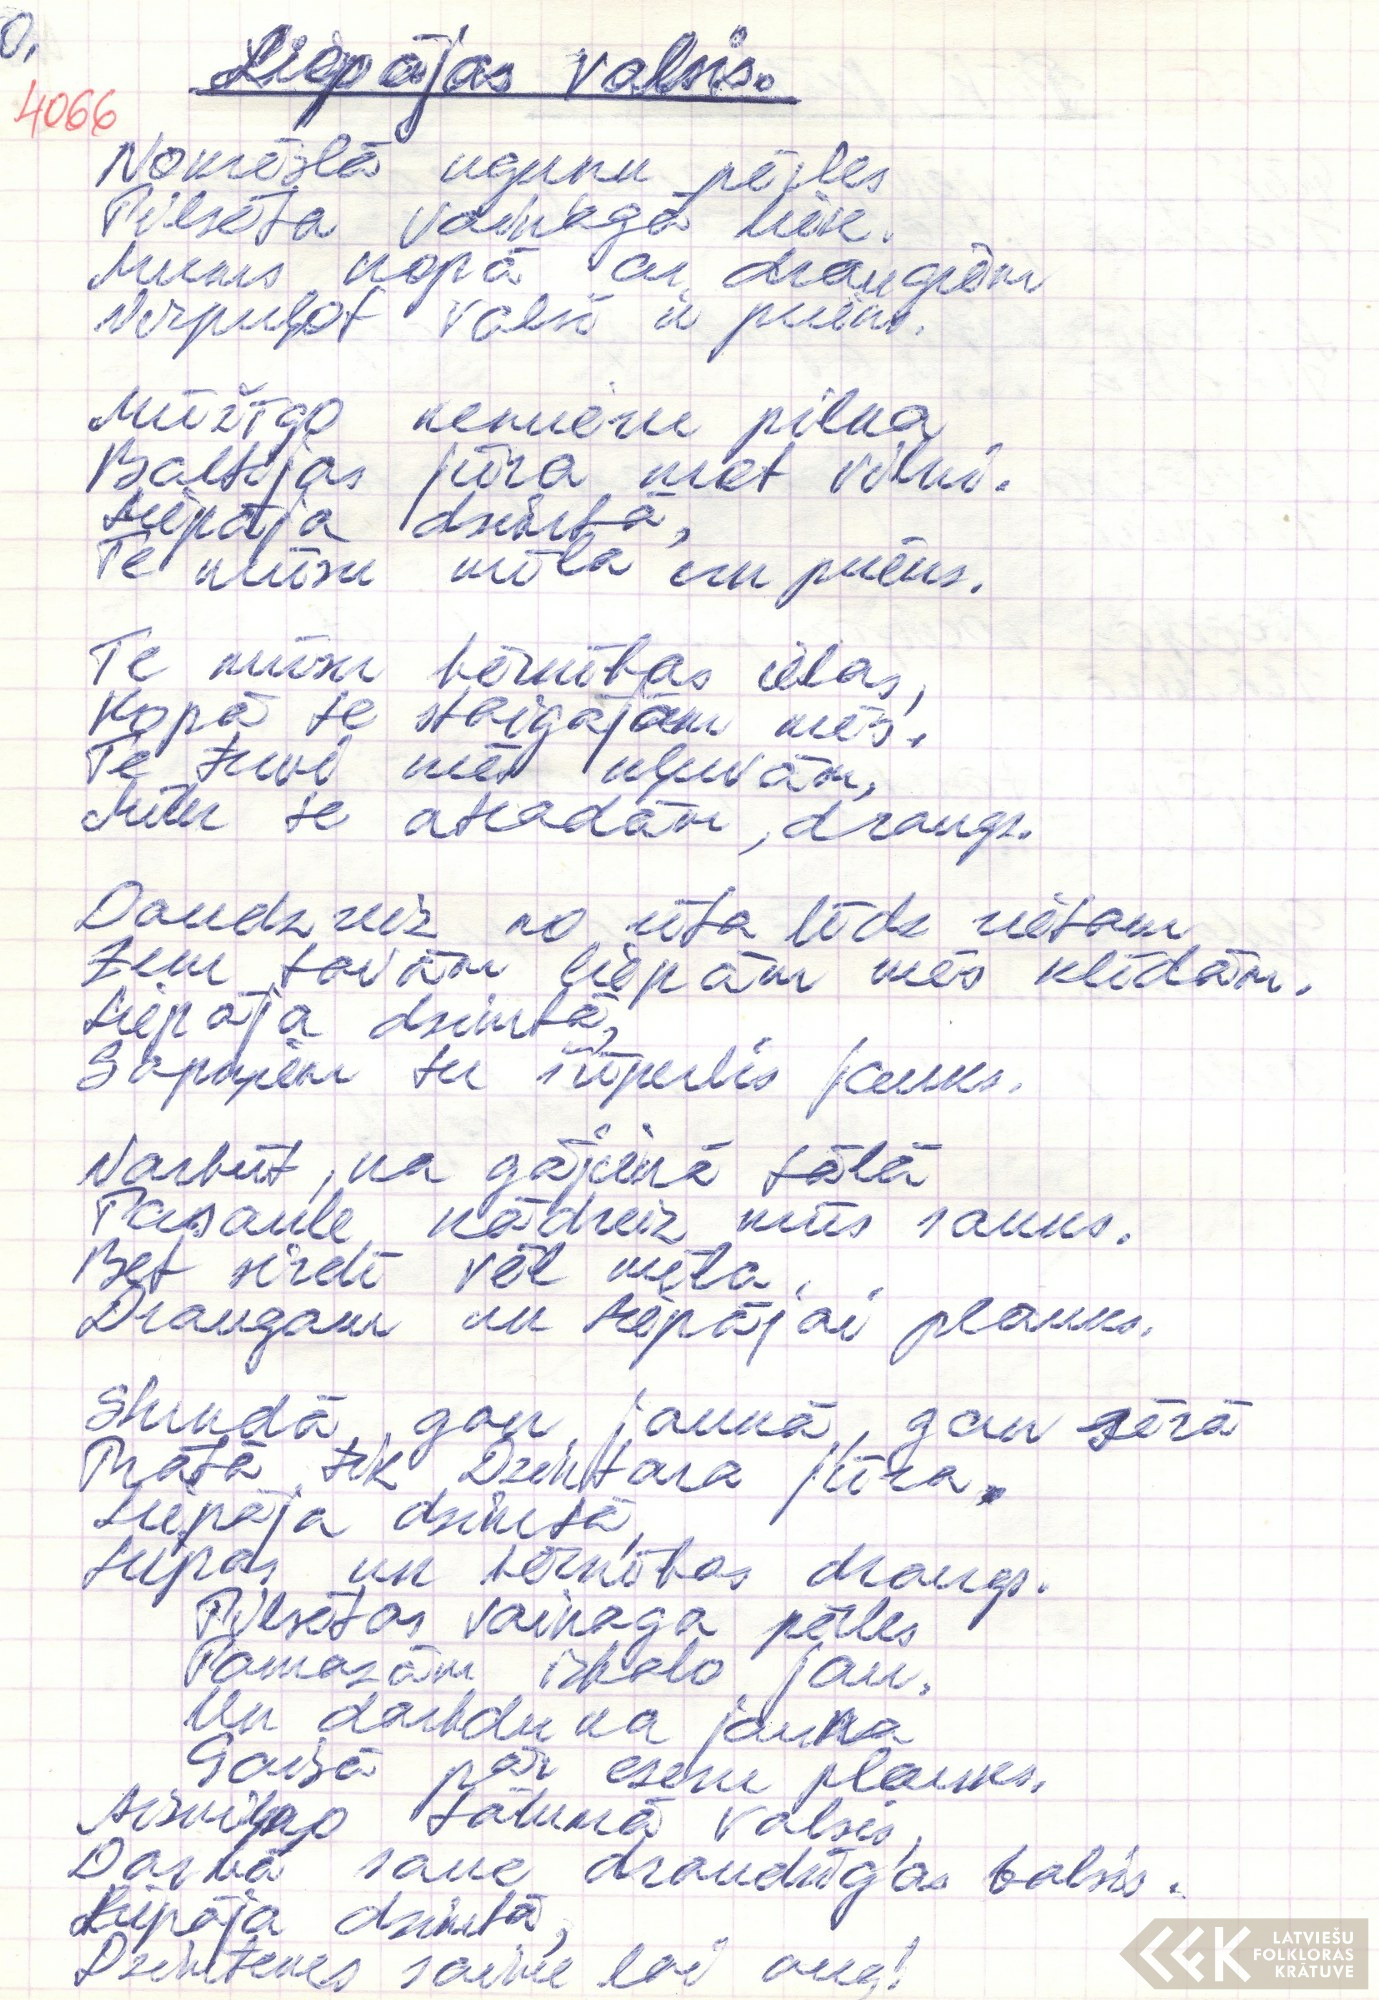 0,
Liepājas valsis.
4066
Nokrēslā uguņu pērles
Pilsēta vainagā liek.
Mums kopā ar draugiem
Virpuļot valsī ir prieks.
Mūžīgo nemieru pilna
Baltijas jūra met vilni.
Liepāja dzimtā,
Te mūsu mīla un prieks.
Te mūsu bērnības ielas,
Kopā te staigājām mēs.
Te zuvi mēs kļuvām,
Mīlu te atradām, draugs.
Daudzreiz no rīta līdz rietam
Zem tavām liepām mēs klīdām.
Liepāja dzimtā,
Sapņiem tu šūpulis jauks.
Varbūt, ka gājienā tālā
Pasaule kādreiz mūs sauks.
Bet sirdī vēl mīla
Draugam un Liepājai plauks.
Skundā gan jaukā, gan sērā
Prātā tik Dzintara jūra.
Liepāja dzimtā,
Liepas un bērnības draugs.
Pilsētas vainaga pērles
Pamazām izbalo jau.
Un darbdiena jauna
Gaisā pār ezeru plauks.
Aizvijļo tālumā valsis,
Darbā sauc draudzīgas balsis.
Liepāja dzimtā,
Dzimtenes saime lai aug!
LATVIEŠU
FOLKLORAS
KRĀTUVE